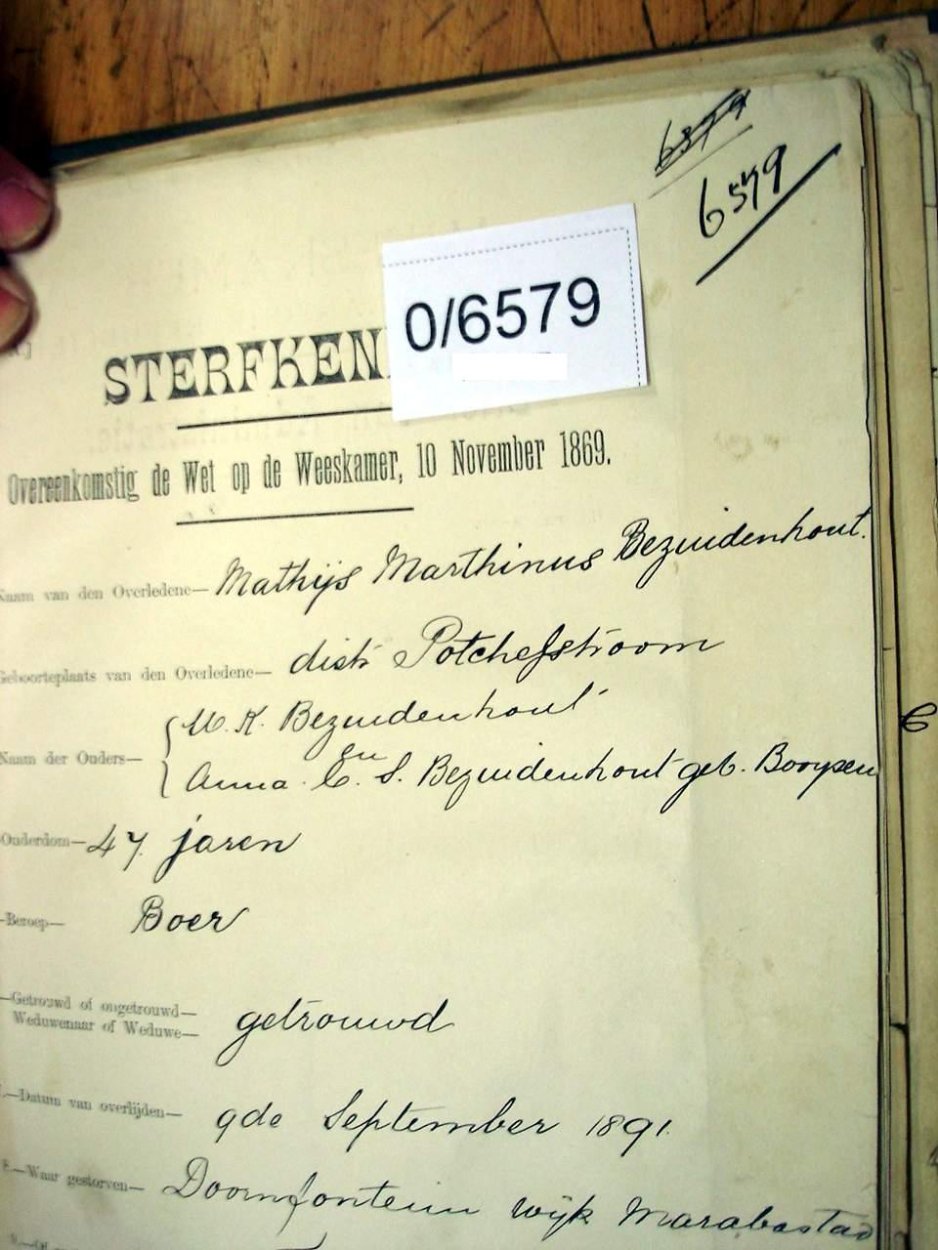 6579
6579
0/6579
STERFKEN
Overeenkomstig de Wet op de Weeskamer, 10 November 1869.
Naam van den Overledene— Mathijs Marthinus Bezuidenhout.
Geboorteplaats van den Overledene— distr Potchefstroom
M. K. Bezuidenhout
en
Naam der Ouders—
Anna C. S. Bezuidenhout geb. Booysen
Ouderdom— 47 jaren
—Beroep— Boer
—Getrouwd of ongetrouwd—
Weduwenaar of Weduwe— getrouwd
—Datum van overlijden— 9de September 1891.
8.—Waar gestorven— Doornfontein wijk Marabastad